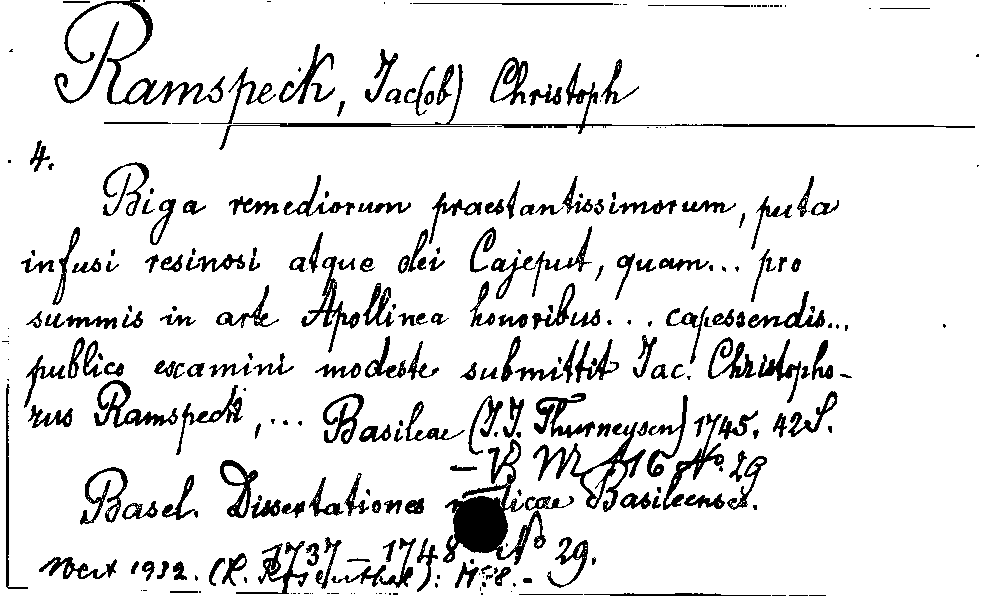 Ramspeck, Jac(ob) Christoph
4.
Biga remediorum praestantissimorum, puta
infusi resinosi atque olei Cajeput, quam... pro
summis in arte Apollinea honoribus... capessendis...
publico examini modeste submittit Jac. Christopho-
rus Ramspeck, ... Basileae (J.J. Thurneysen) 1745. 42 S.
No. 29
Basel. Dissertationes medicae Basileenses.
1737-1748 No 29.
1932. (L. Rosenthal):